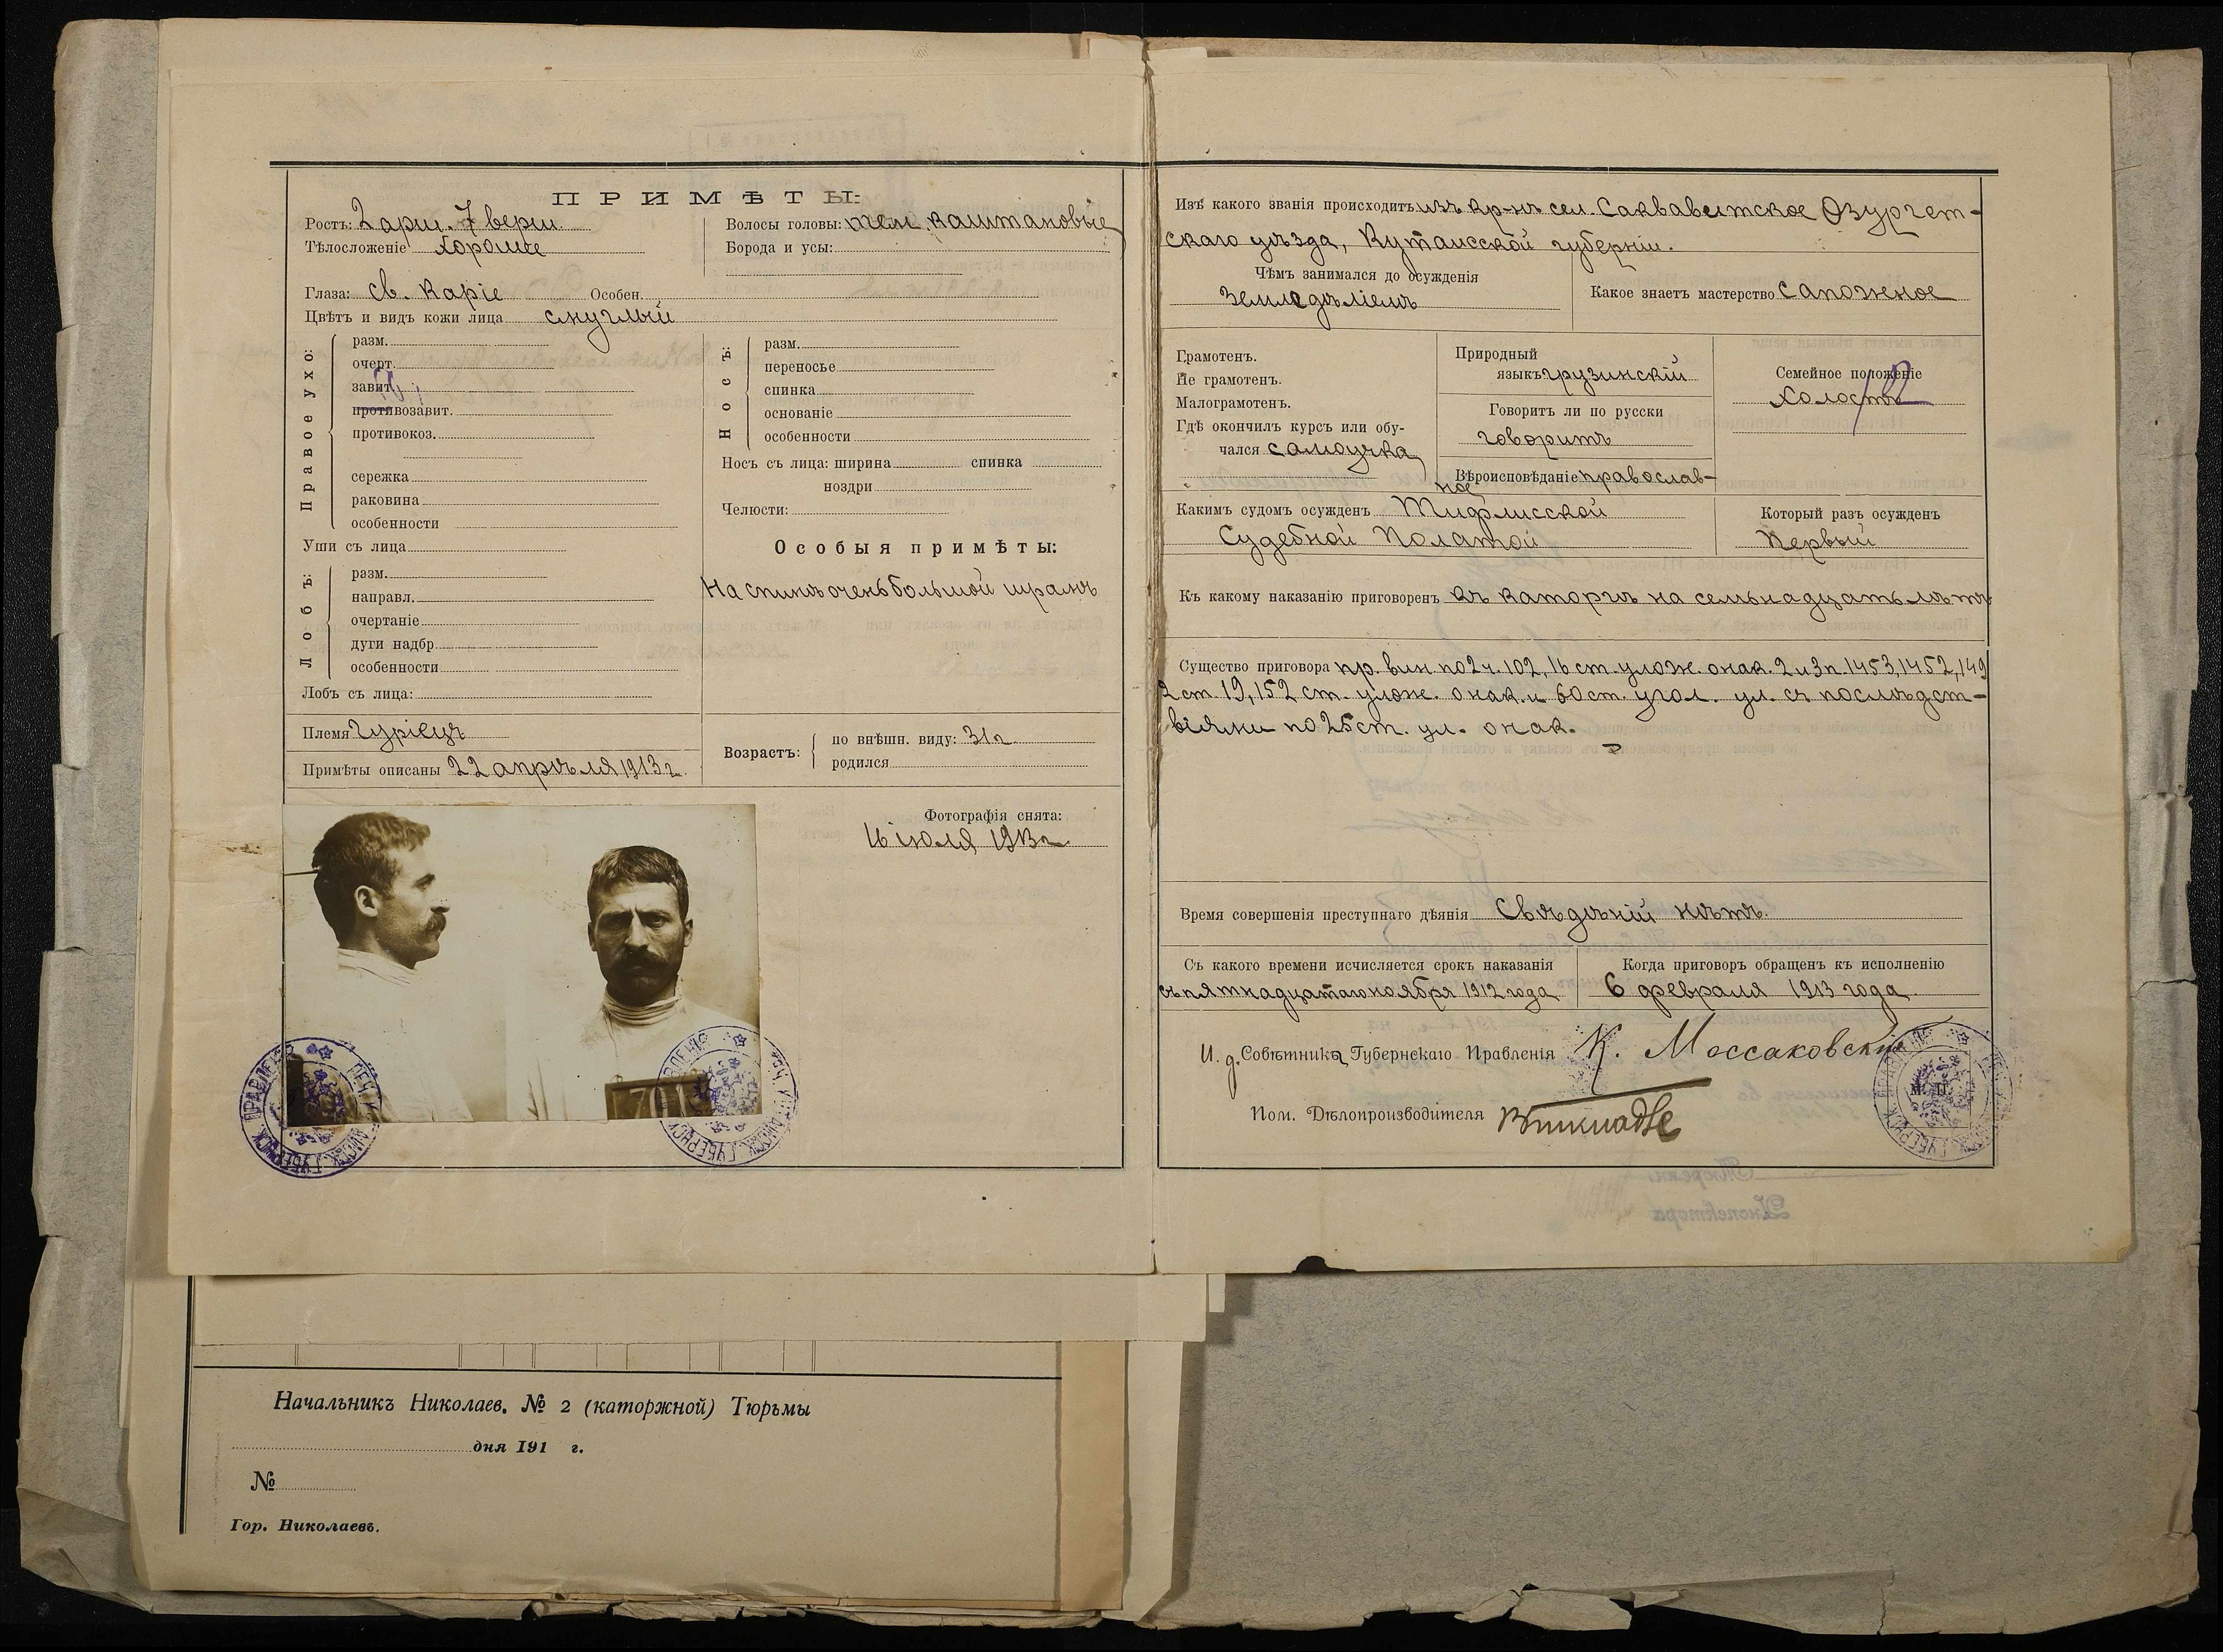 ПРИМѢТЫ:
Ростъ: 2 арш. 7 верш.
Тѣлосложеніе хорошее
Волосы головы: тем. каштановые
Борода и усы:
Глаза: св. каріе Особен.
Цвѣтъ и видъ кожи лица смуглый
Правое ухо:
разм.
очерт.
завит.
противозавит.
противокоз.
сережка
раковина
особенности
Уши съ лица
Носъ:
разм.
переносье
спинка
основаніе
особенности
Носъ съ лица: ширина спинка
ноздри
Челюсти:
Особыя примѣты:
На спинѣ очень большой шрамъ
Лобъ:
разм.
направл.
очертаніе
дуги надбр.
особенности
Лобъ съ лица:
Племя Гуріецъ
Примѣты описаны 22 апрѣля 1913 г.
Возрастъ:
по внѣшн. виду: 31 г.
родился
Фотографія снята:
16 іюля 1913 г.
701
Изъ какого званія происходитъ изъ кр-нъ сел. Саквавитское Озургет-
скаго уѣзда, Кутаисской губерніи.
Чѣмъ занимался до осужденія
Земледѣліемъ
Какое знаетъ мастерство сапожное
Грамотенъ.
Не грамотенъ.
Малограмотенъ.
Гдѣ окончилъ курсъ или обу-
чался самоучка
Природный
языкъ грузинскій
Говоритъ ли по русски
говоритъ
Вѣроисповѣданіе православ-
ное
Семейное положеніе
Холостъ
Какимъ судомъ осужденъ Тифлисской
Судебной Полатой
Который разъ осужденъ
Первый
Къ какому наказанію приговоренъ къ каторгѣ на семьнадцать лѣтъ
Существо приговора пр. вин по 2 ч. 102, 16 ст. улож. о нак. 2 и 3 п. 1453, 1452, 149
2 ст. 19, 152 ст. улож. о нак. и 60 ст. угол. ул. съ послѣдст-
віями по 25 ст. ул. о нак.
Время совершенія преступнаго дѣянія Свѣдѣній нѣтъ.
Съ какого времени исчисляется срокъ наказанія
съ пятнадцатаго ноября 1912 года
Когда приговоръ обращенъ къ исполненію
6 февраля 1913 года
И. д. Совѣтника Губернскаго Правленія К. Моссаковскій
Пом. Дѣлопроизводителя
Начальникъ Николаев. № 2 (каторжной) Тюрьмы
дня 191 г.
№
Гор. Николаевъ.